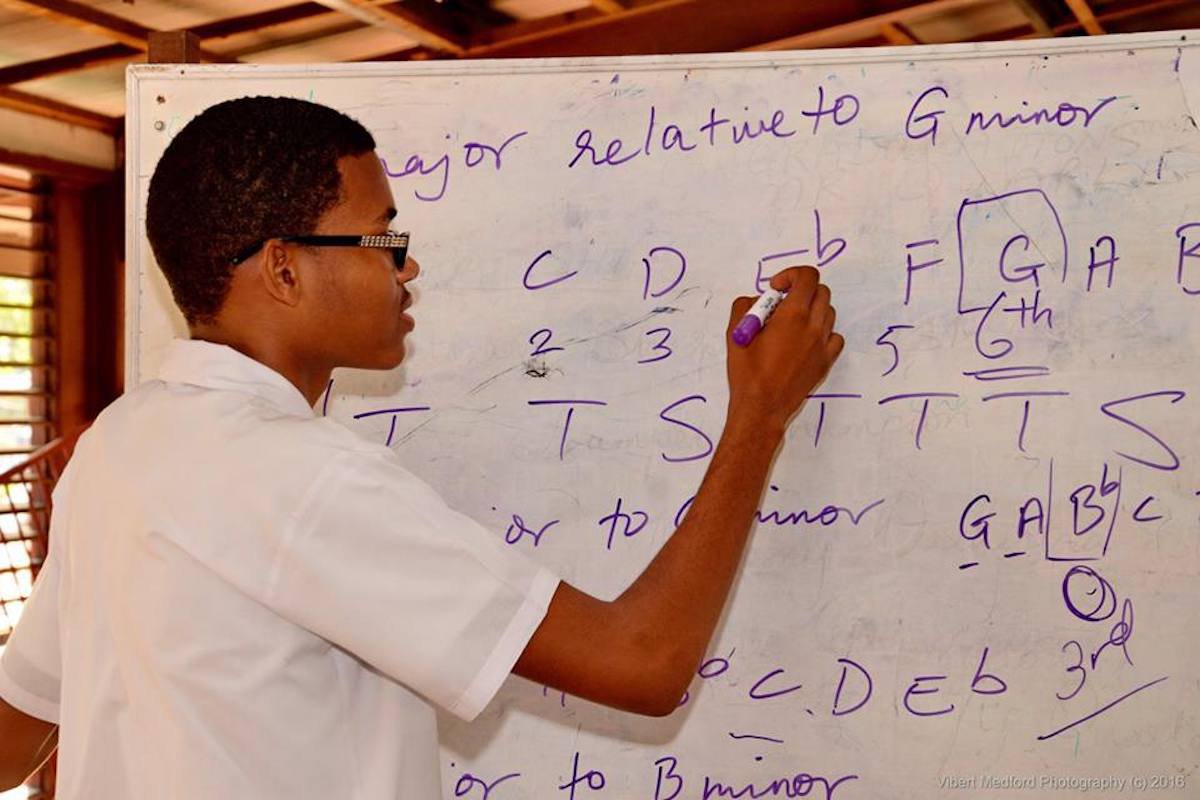 major relative to G minor
C D Eb F G A B
2 3 5 6th
T T S T T T S
or to minor G A Bb C
C D E b 3rd
or to B minor
Vibert Medford Photography (c) 2016